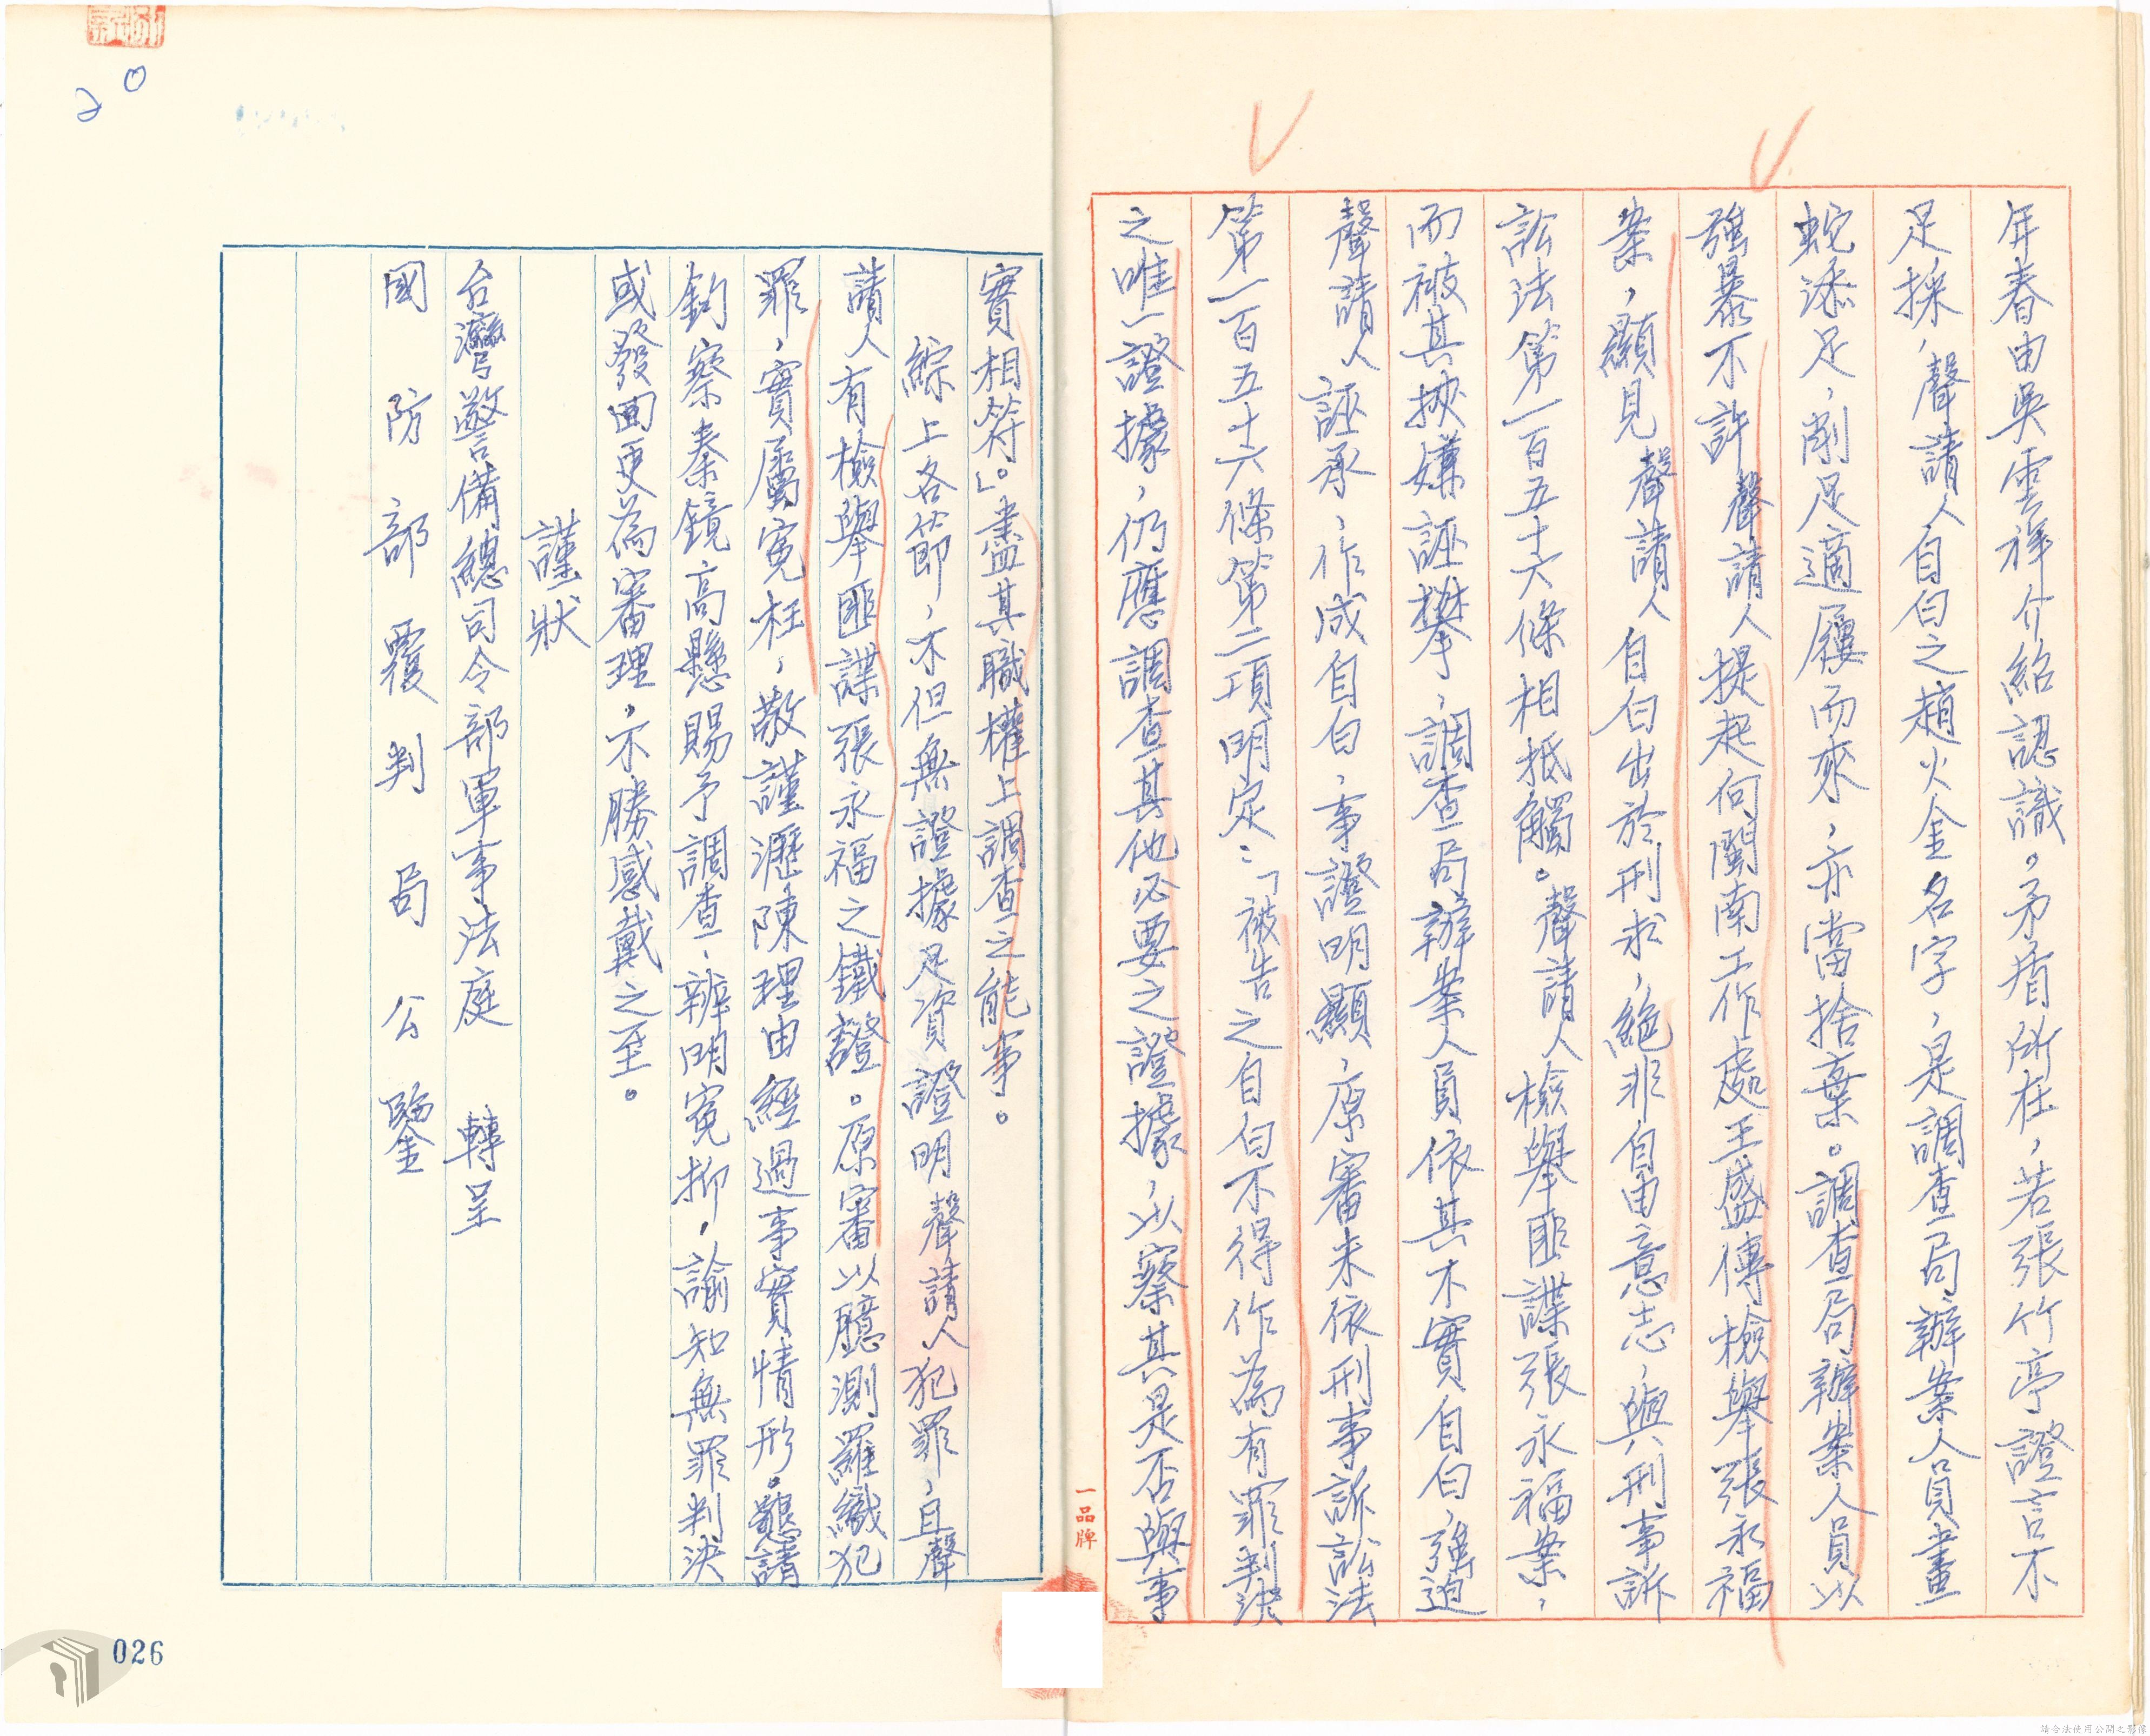 年春由吳雲祥介紹認識。矛盾所在，若張竹亭證言不
足採，聲請人自白之趙火金名字，是調查局辦案人員畫
蛇添足，削足適履而來，亦當捨棄。調查局辦案人員以
強暴不許聲請人提起向閩南工作處王盛傳檢舉張永福
案，顯見聲請人自白出於刑求，絕非自由意志，與刑事訴
訟法第一百五十六條相抵觸。聲請人檢舉匪諜張永福案，
而被其挾嫌誣攀，調查局辦案人員依其不實自白，強迫
聲請人誣承，作成自白，事證明顯，原審未依刑事訴訟法
第一百五十六條第二項明定：「被告之自白不得作為有罪判決
之唯一證據，仍應調查其他必要之證據，以察其是否與事
一品牌
實相符」。盡其職權上調查之能事。
綜上各節，不但無證據足資證明聲請人犯罪，且聲
請人有檢舉匪諜張永福之鐵證。原審以臆測羅織犯
罪，實屬冤枉，敬謹瀝陳理由經過事實情形。懇請
鈞察秦鏡高懸賜予調查，辨明冤抑，諭知無罪判決
或發回更為審理，不勝感戴之至。
謹狀
台灣警備總司令部軍事法庭 轉呈
國防部覆判局公鑒
20
026
請合法使用公開之影像